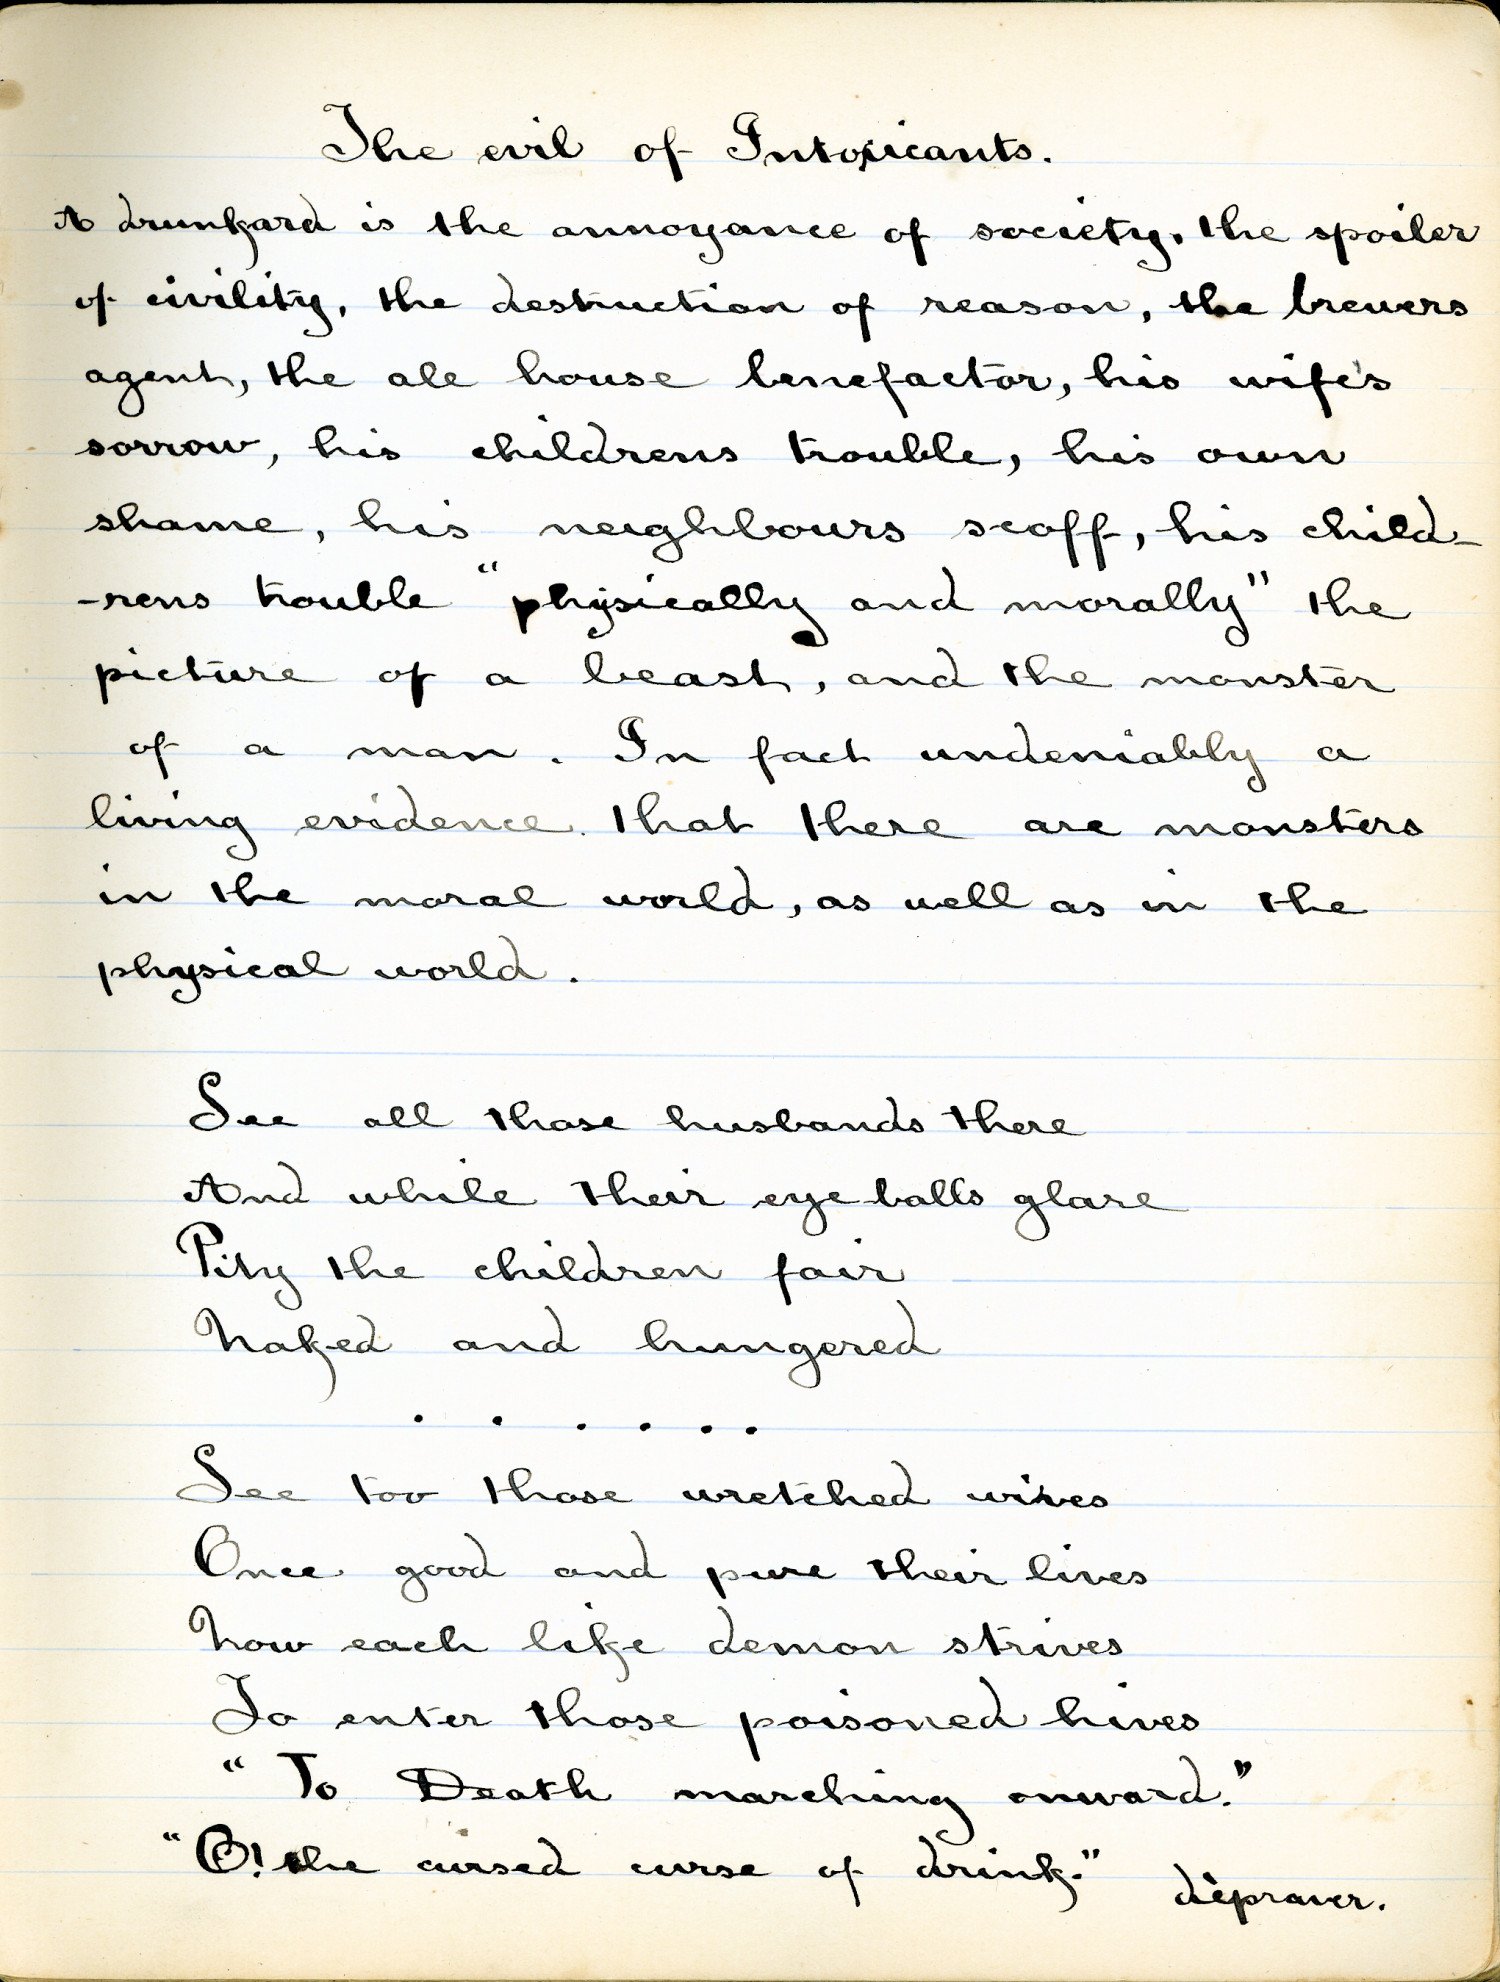 The evil of Intoxicants.
A drunkard is the annoyance of society, the spoiler
of civility, the destruction of reason, the brewers
agent, the ale house benefactor, his wife's
sorrow, his childrens trouble, his own
shame, his neighbours scoff, his child-
-rens trouble "physically and morally" the
picture of a beast, and the monster
of a man. In fact undeniably a
living evidence that there are monsters
in the moral world, as well as in the
physical world.
See all those husbands there
And while their eye balls glare
Pity the children fair
Naked and hungered
. . . . . .
See too those wretched wives
Once good and pure their lives
Now each like demon strives
To enter those poisoned hives
"To Death marching onward."
"O! the cursed curse of drink."
dèpraver.